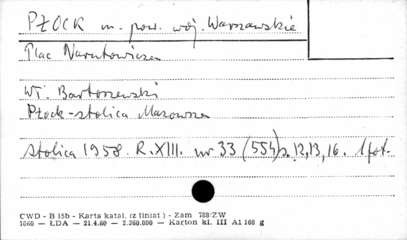 PŁOCK m. pow. woj. Warszawskie
Plac Narutowicza
Wł. Bartoszewski
Płock - stolica Mazowsza
Stolica 1958. R. XIII. nr 33 (554) s. 12, 13, 16. 1 fot.
CWD - B 15b - Karta katal. (z liniat) - Zam 768/ZW
1060 — ŁDA — 21.4.60 — 2.360.000 — Karton kl. III A1 160 g